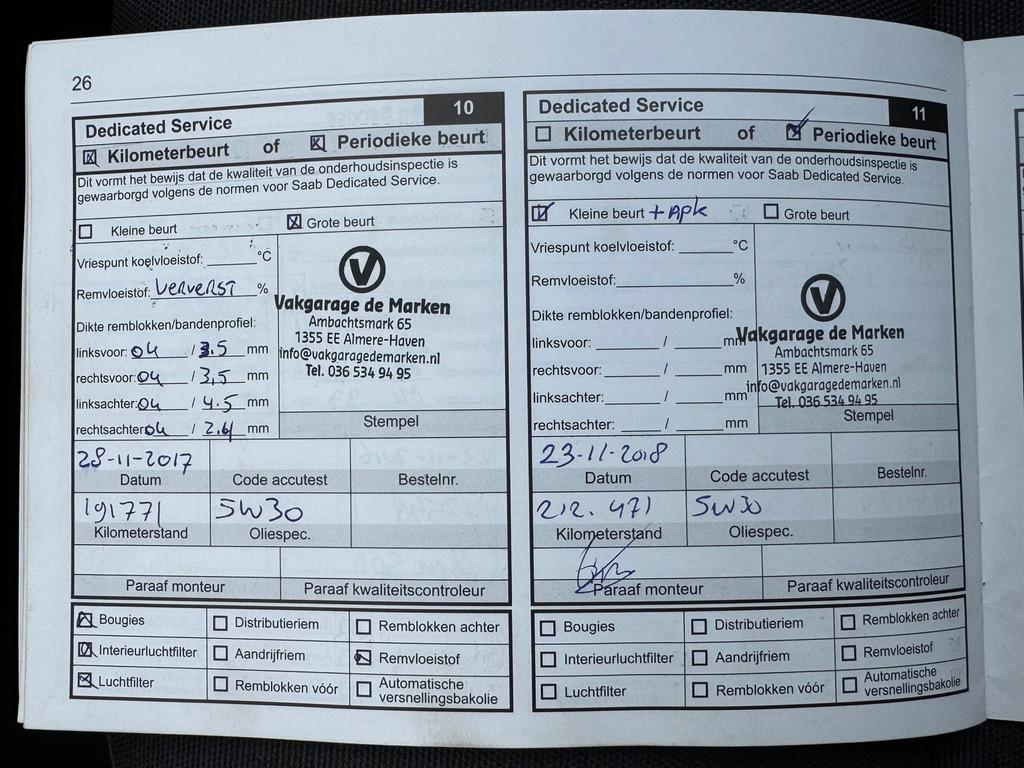 26
Dedicated Service 10
Kilometerbeurt of Periodieke beurt
Dit vormt het bewijs dat de kwaliteit van de onderhoudsinspectie is
gewaarborgd volgens de normen voor Saab Dedicated Service.
Kleine beurt Grote beurt
Vriespunt koelvloeistof: °C
Remvloeistof: VERVERST %
Dikte remblokken/bandenprofiel:
linksvoor: 04 / 3.5 mm
rechtsvoor: 04 / 3,5 mm
linksachter: 04 / 4.5 mm
rechtsachter: 04 / 2.4 mm
Vakgarage de Marken
Ambachtsmark 65
1355 EE Almere-Haven
info@vakgaragedemarken.nl
Tel. 036 534 94 95
Stempel
28-11-2017
Datum Code accutest Bestelnr.
191771 5W30
Kilometerstand Oliespec.
Paraaf monteur Paraaf kwaliteitscontroleur
Bougies Distributieriem Remblokken achter
Interieurluchtfilter Aandrijfriem Remvloeistof
Luchtfilter Remblokken vóór Automatische
versnellingsbakolie
Dedicated Service 11
Kilometerbeurt of Periodieke beurt
Dit vormt het bewijs dat de kwaliteit van de onderhoudsinspectie is
gewaarborgd volgens de normen voor Saab Dedicated Service.
Kleine beurt + Apk Grote beurt
Vriespunt koelvloeistof: °C
Remvloeistof: %
Dikte remblokken/bandenprofiel:
linksvoor: / mm
rechtsvoor: / mm
linksachter: / mm
rechtsachter: / mm
Vakgarage de Marken
Ambachtsmark 65
1355 EE Almere-Haven
info@vakgaragedemarken.nl
Tel. 036 534 94 95
Stempel
23-11-2018
Datum Code accutest Bestelnr.
212.471 5W30
Kilometerstand Oliespec.
Paraaf monteur Paraaf kwaliteitscontroleur
Bougies Distributieriem Remblokken achter
Interieurluchtfilter Aandrijfriem Remvloeistof
Luchtfilter Remblokken vóór Automatische
versnellingsbakolie